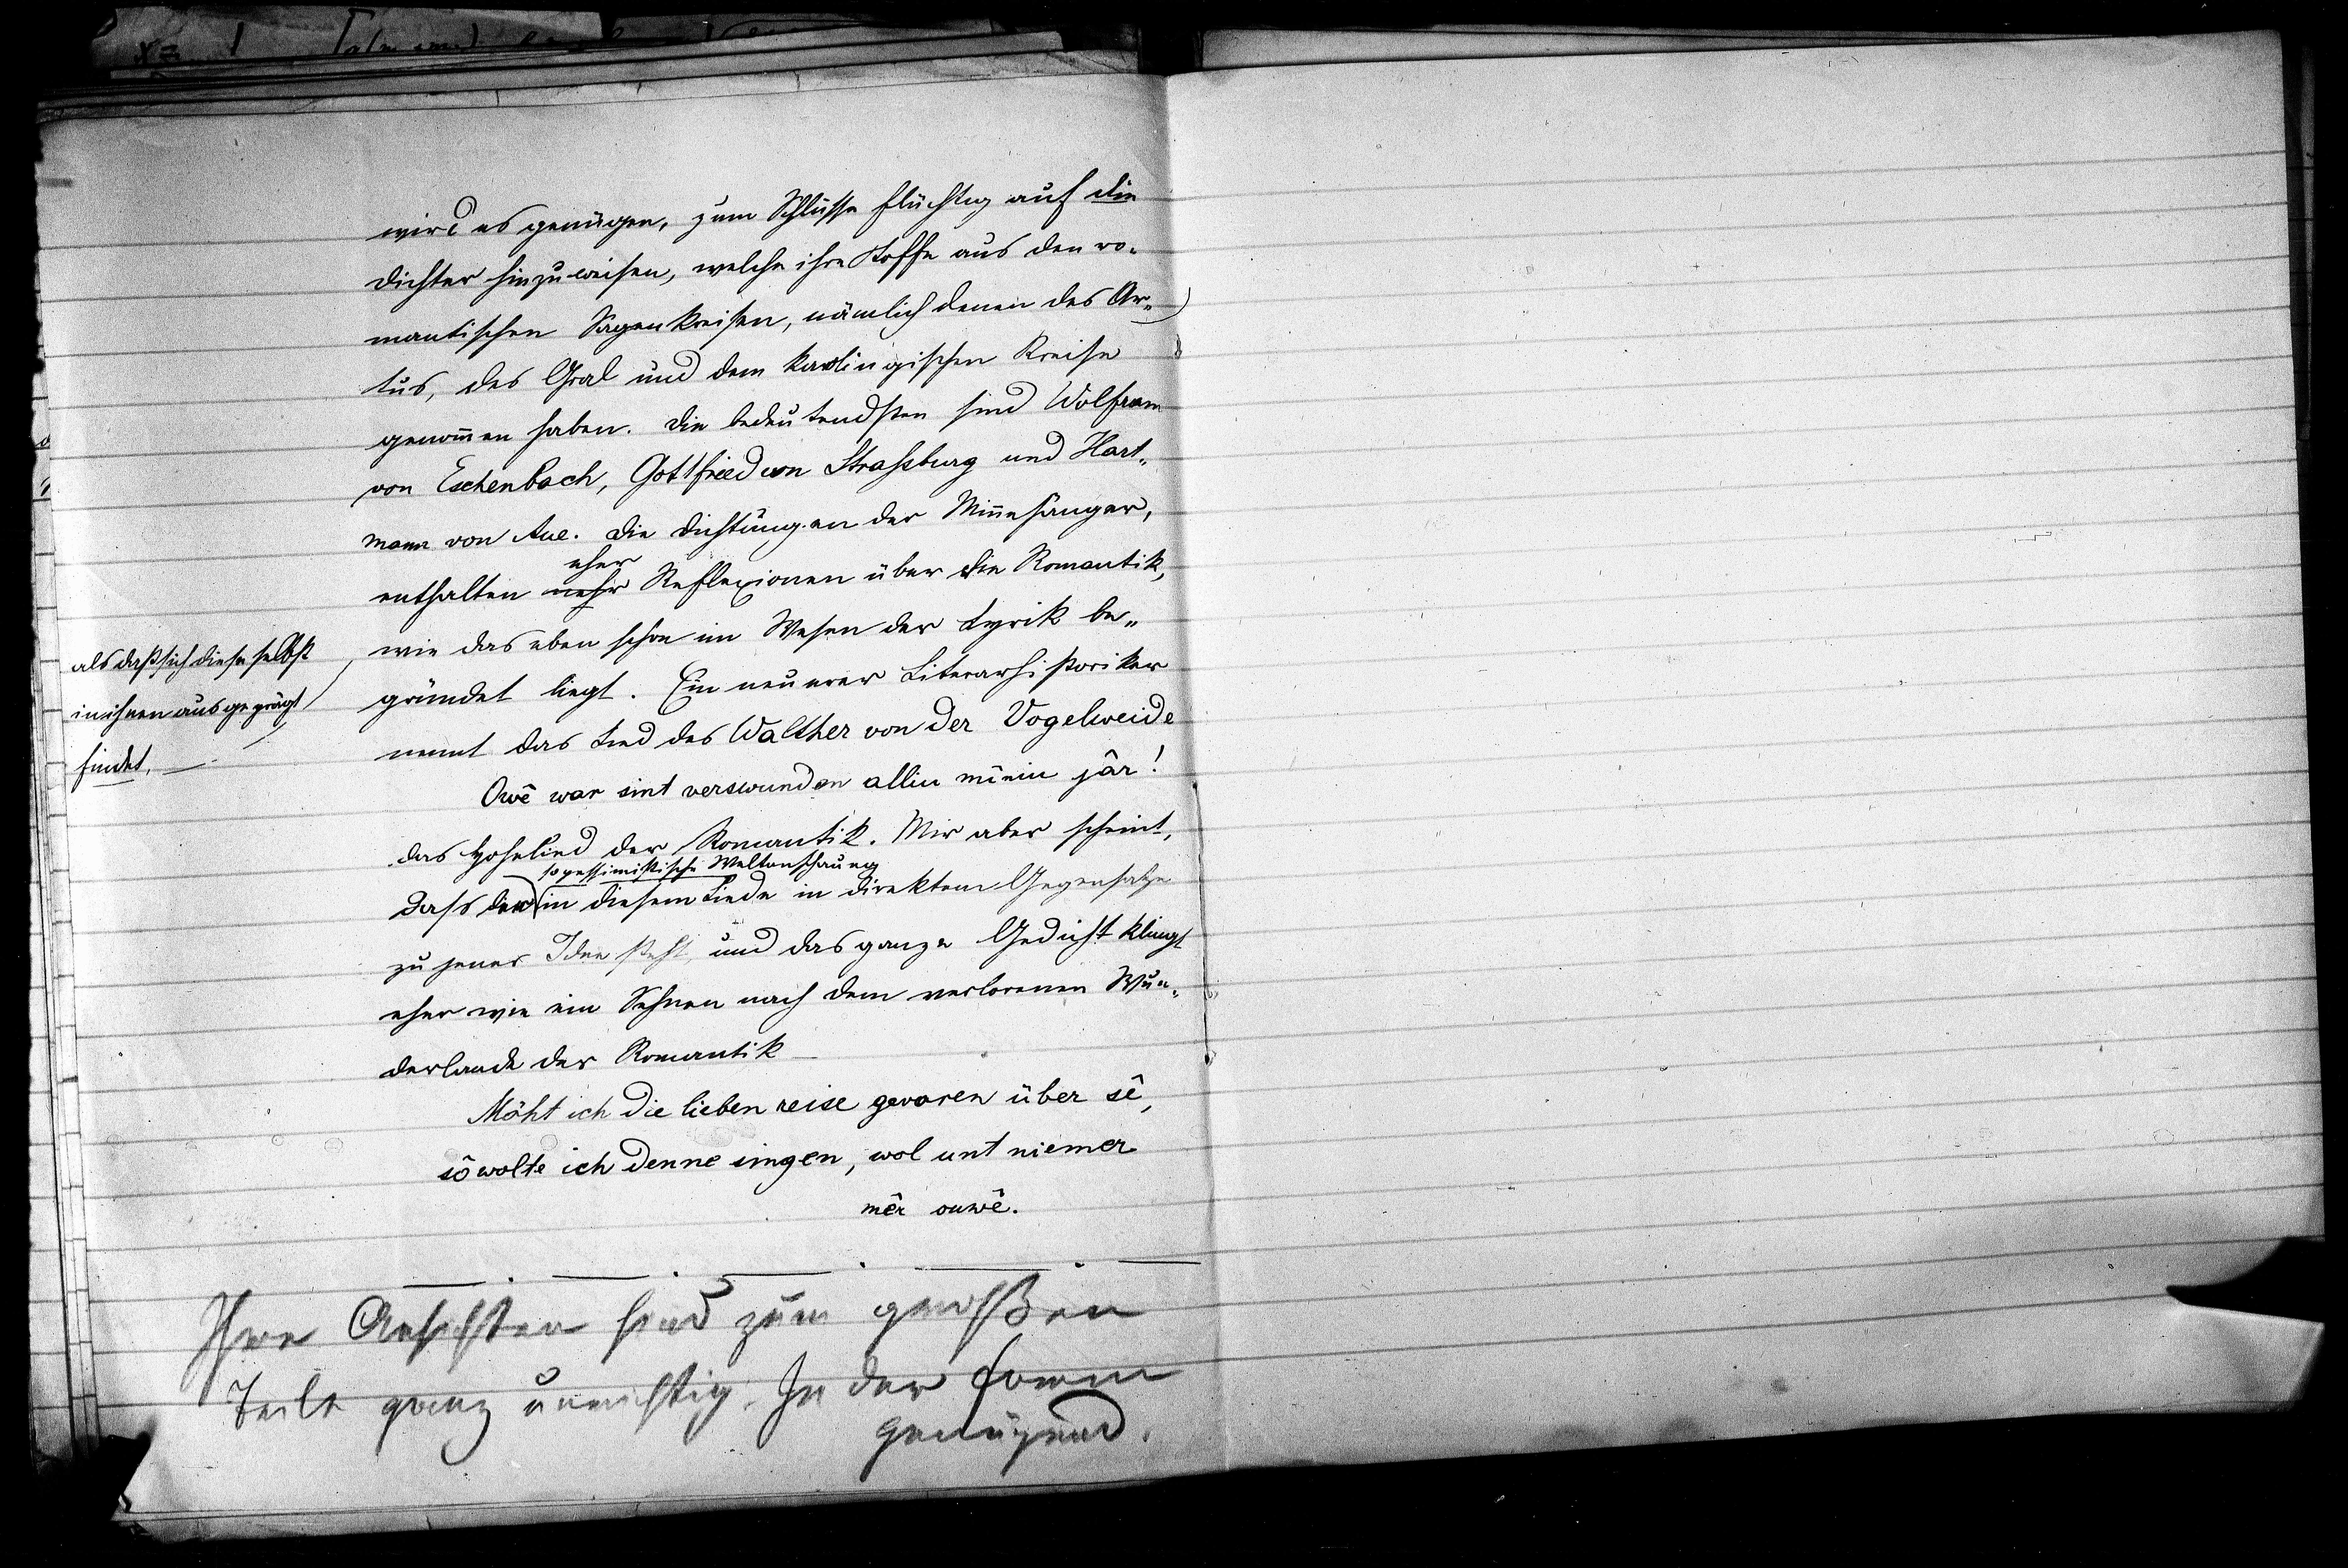 wird es genügen, zum Schlusse flüchtig auf die
Dichter hinzuweisen, welche ihre Stoffe aus den ro-
mantischen Sagenkreisen, nämlich denen des Ar-
tus, des Gral und dem karolingischen Kreise
genommen haben. Die bedeutendsten sind Wolfram
von Eschenbach, Gottfried von Strassburg und Hart-
mann von Aue. Die Dichtungen der Minnesänger,
eher
enthalten mehr Reflexionen über die Romantik,
als daß sich diese selbst
in ihnen ausgeprägt
findet,
wie das eben schon im Wesen der Lyrik be-
gründet liegt. Ein neuerer Literarhistoriker
nennt das Lied des Walther von der Vogelweide
Owê war sint verswunden alliu mîniu jâr!
das Hohelied der Romantik. Mir aber scheint,
so pessimistische Weltanschauung
dass die in diesem Liede in direktem Gegensatze
zu jener Idee steht, und das ganze Gedicht klingt
eher wie ein Sehnen nach dem verlorenen Wun-
derlande der Romantik
Möht ich die lieben reise gevaren über sê,
sô wolte ich denne singen, wol unt niemer
mêr ouwê.
Ihre Ansichten sind zum großen
Teile ganz unrichtig. In der Form
genügend.